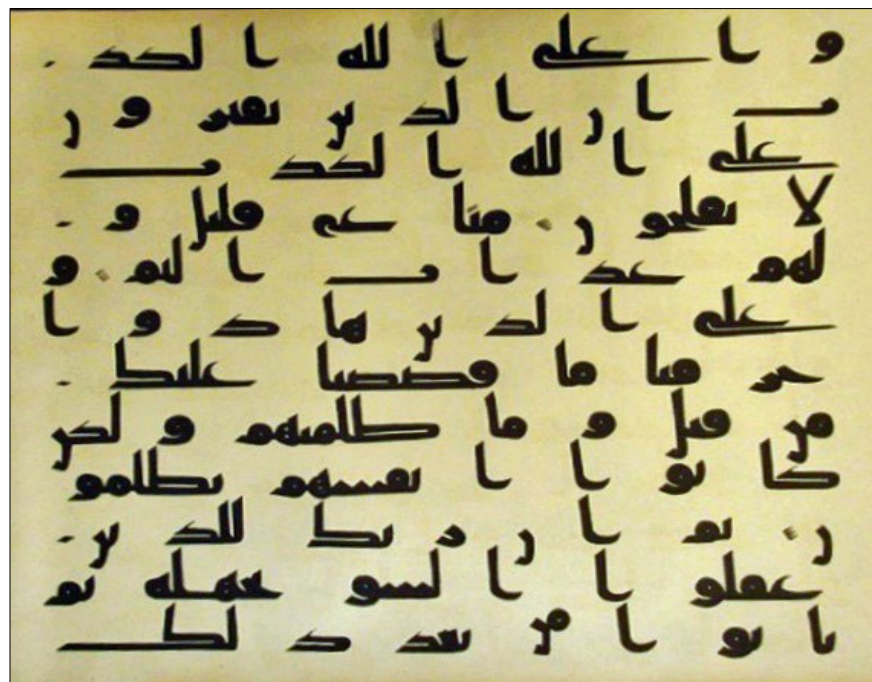 وا على الله الكذ
ب ان الذين يفترون
على الله الكذب
لا يفلحون متع قليل و
لهم عذاب اليم و
على الذين هادوا
حرمنا ما قصصنا عليك
من قبل وما ظلمنهم ولكن
كانوا انفسهم يظلمو
ن ثم ان ربك للذين
عملوا السو بجهله ثم
تابوا من بعد ذلك